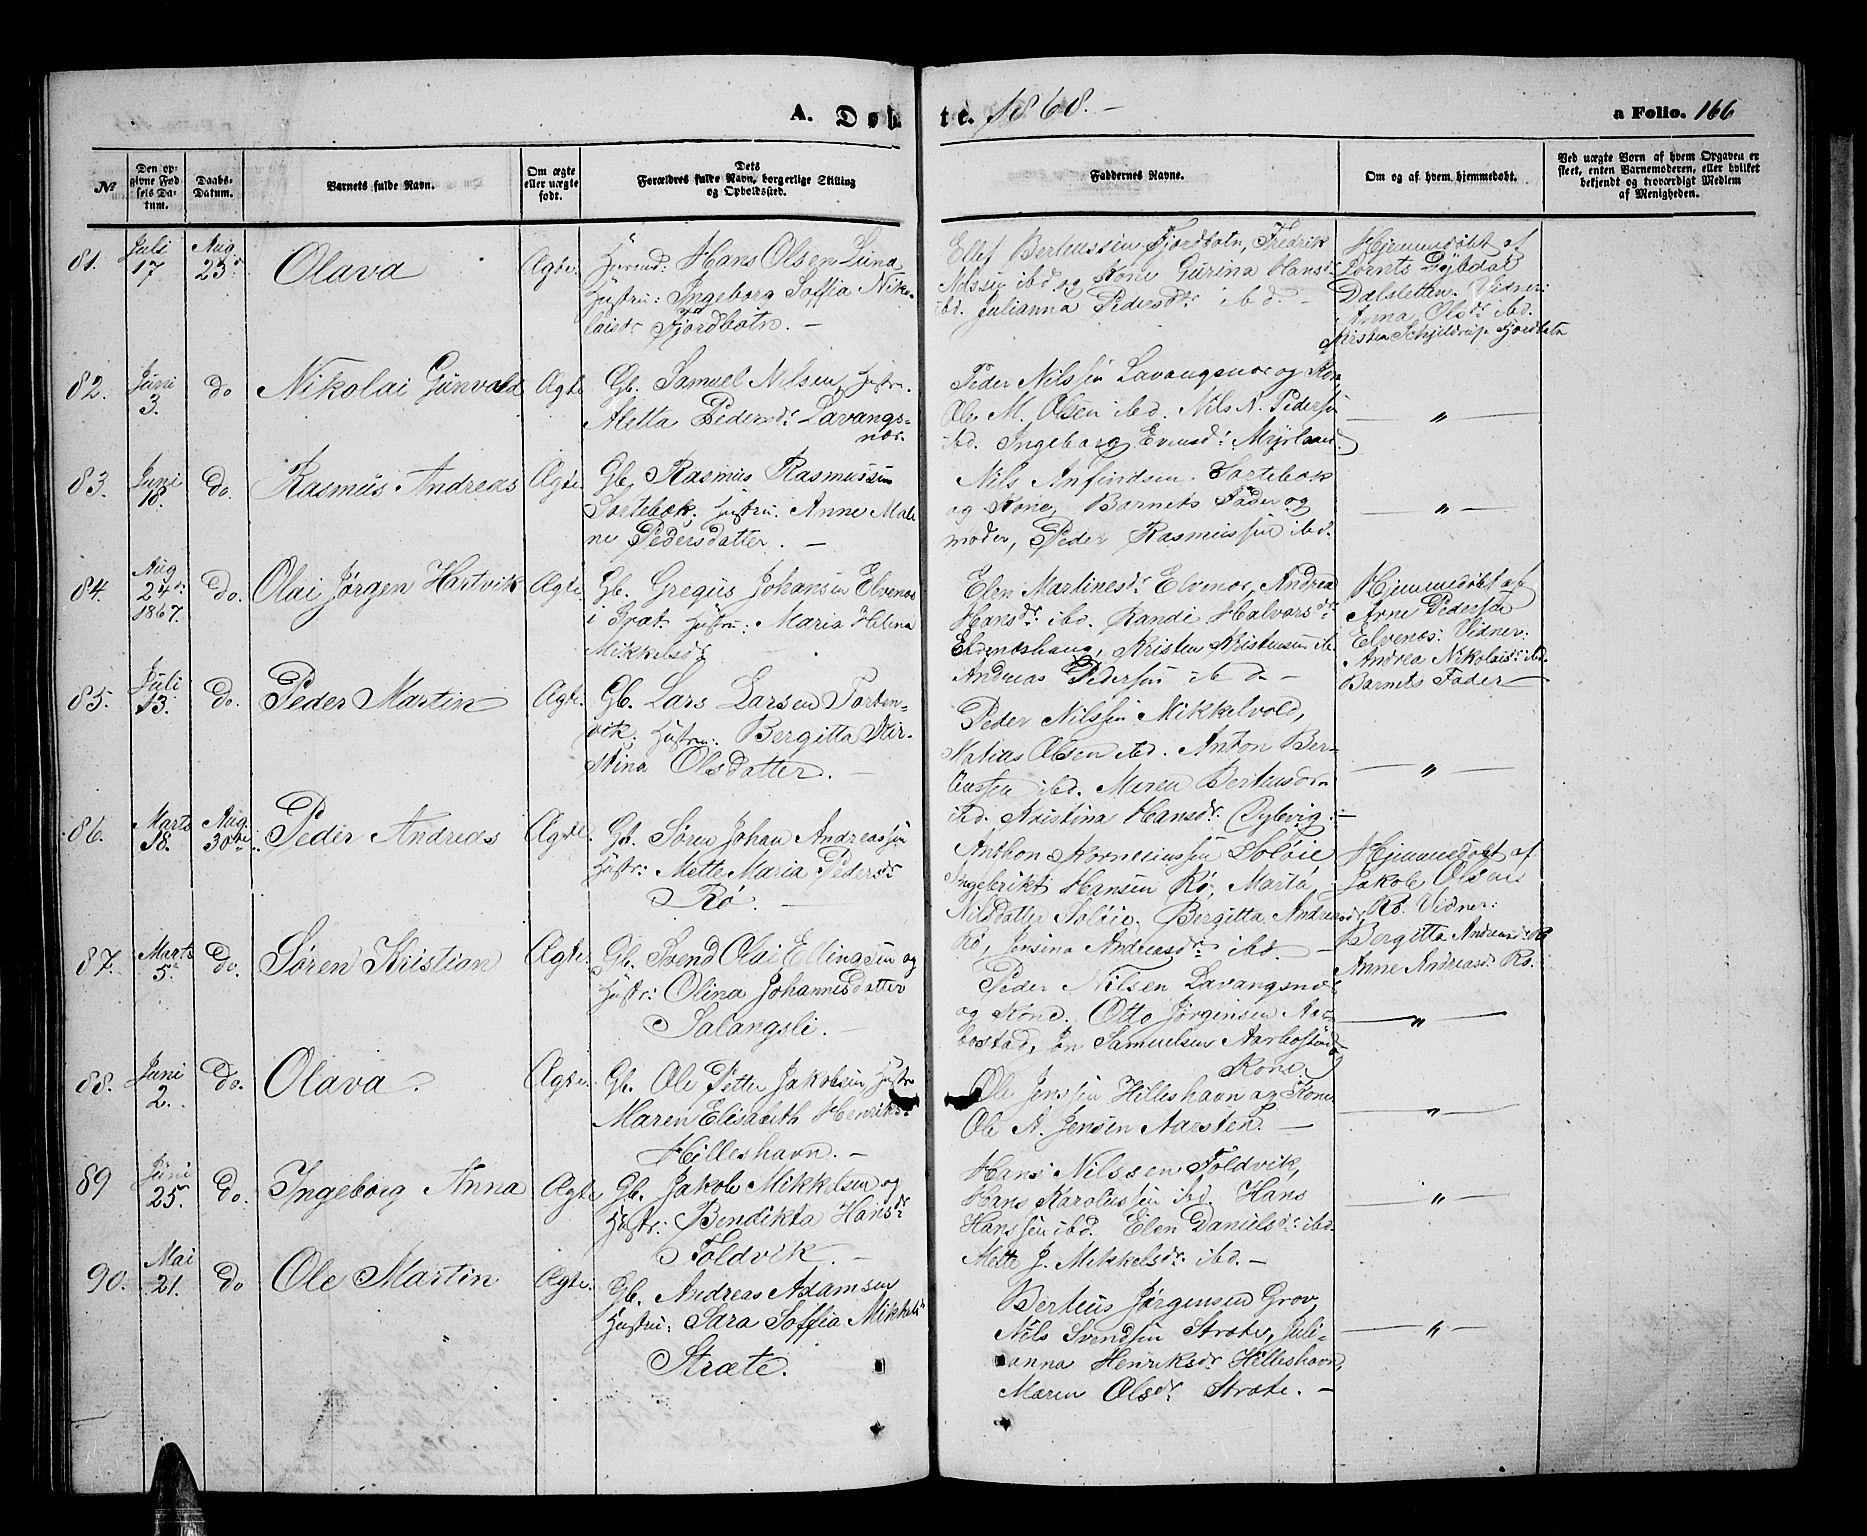 A. Døbte. 1868.
a Folio. 166
№
Den op-
givne Fød-
sels Da-
tum.
Daabs-
Datum.
Barnets fulde Navn.
Om ægte
eller uægte
født.
Dets
Forældres fulde Navn, borgerlige Stilling
og Opholdssted.
Faddernes Navne.
Om og af hvem hjemmedøbt.
Ved uægte Born af hvem Opgaven er
skeet, enten Barnemoderen, eller hvilket
bekjendt og troværdigt Medlem
af Menigheden.
81. Juli 17. Aug. 23. Olava Ægte.
Huusmd: Hans Olsen Luna
Hustru: Ingeborg Soffia Niko-
laisdr Fjordbotn. —
Ellef Bertheussen Fjordbotn, Fredrik
Nilssen ibd og Kone Gurina Hansdr
ibd. Julianna Pedersdr ibd. —
Hjemmedøbt af
Lornts Dybdal
Dalsletten. Vidner:
Anna Olsdr ibd.
Kirsten Schjeldrup Fjordbotn
82. Juni 3. do Nikolai Gunvald Ægte
Gb. Samuel Nilsen, Hustru.
Aletta Pedersdr Lavangs-
nes.
Peder Nilssen Lavangsnes og Kone,
Ole M. Olsen ibd. Nils N. Pedersen
ibd. Ingeborg Evensdr Myrland
— „ —
83. Juni 18. do. Rasmus Andreas Ægte.
Gb. Rasmus Rasmussen
Sortebæk, Hustru. Anne Mali-
ne Pedersdatter. —
Nils Anfindsen Sortebæk
og Kone, Barnets Fader og
moder, Peder Rasmussen ibd.
— „ —
84. Aug 24de 1867. do. Olai Jørgen Hartvik Ægte.
Gb. Gregus Johansen Elvenes
i Hustru: Maria Helena
Mikkelsdr
Elen Martinesdr Elvenes, Andrea
Hansdr ibd. Randi Halvarsdr
Elvenæshaug, Kristen Kristensen ibd.
Andreas Pedersen ibd. —
Hjemmedøbt af
Arne Pedersen
Elvenes: Vidner:
Andrea Nikolaisdr ibd.
Barnets Fader —
85. Juli 13. do. Peder Martin Ægte.
Gb. Lars Larsen Torten-
vik, Hustru: Bergitta Kir-
stina Olsdatter. —
Peder Nilssen Mikkelvold,
Matias Olsen ibd. Anton Ber-
teussen ibd. Maren Berteusdr
ibd. Kristina Hansdr Dybvig. —
— „ —
86. Marts 18. Aug. 30te Peder Andreas Ægte.
Gb. Søren Johan Andreassen
Hustr: Mette Maria Pedersdr
Rø. —
Anthon Korneliussen Soløie
Ingebrikt Hansen Rø, Marta
Nilsdatter Soløie. Bergitta Andreasdr
Rø, Jensina Andreasdr ibd. —
Hjemmedøbt af
Jakob Olsen
Rø. Vidner:
Bergitta Andreasdr Rø
Anne Andreasdr Rø.
87. Marts 5. Do. Søren Kristian Ægte.
Gb. Svend Olai Ellingsen og
Hustr: Olina Johannesdatter
Salangsli. —
Peder Nilsen Lavangsnes
og Kone. Otto Jørginsen Aar-
bostad, Jon Samuelsen Aarbostad
Kone.
— „ —
88. Juni 2. Do. Olava Ægte.
Gb. Ole Petter Jakobsen Hustr
Maren Elisabeth Henriksdr
Hilleshavn. —
Ole Jenssen Hilleshavn og Kone
Ole A. Jensen Aarsten. —
— „ —
89 Juni 25. do. Ingeborg Anna Ægte
Gb. Jakob Mikkelsen og
Hustr: Bendikta Hansdr
Foldvik. —
Hans Nilssen Foldvik,
Hans Karolussen ibd. Hans
Hanssen ibd. Elen Danielsdr ibd.
Mette J. Mikkelsdr ibd. —
— „ —
90. Mai 21. do Ole Martin Ægte.
Gb. Andreas Adamsen
Hustru: Sara Soffia Mikkelsdr
Stræte.
Berteus Jørgensen Grov,
Nils Svendsen Stræte, Juli-
anna Henriksdr Hilleshavn,
Maren Olsdr Stræte. —
— „ —